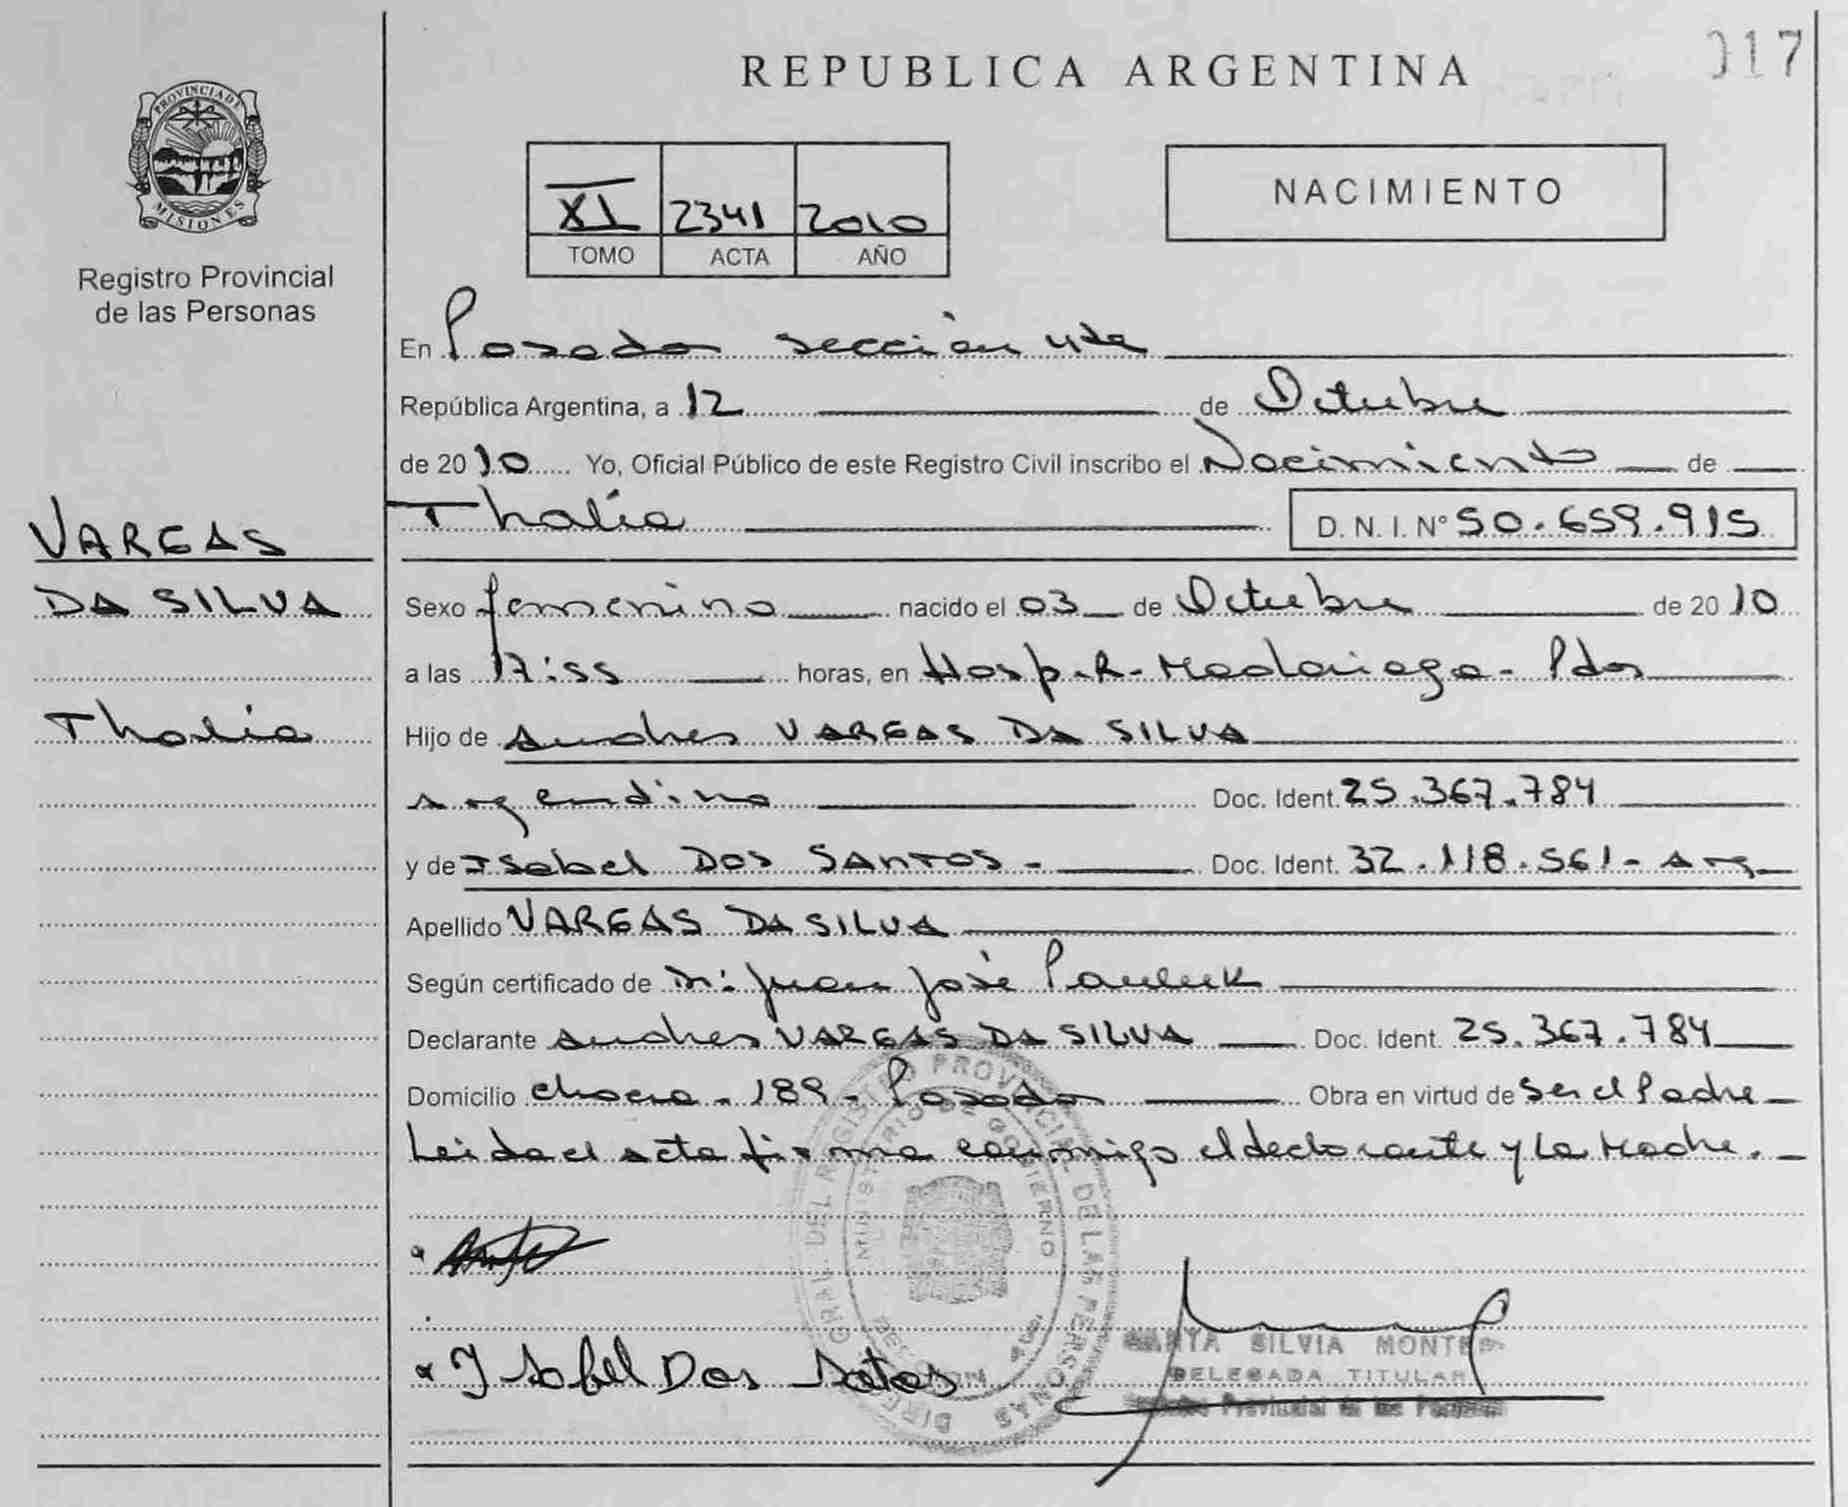 REPUBLICA ARGENTINA
017
PROVINCIA DE
MISIONES
Registro Provincial
de las Personas
XI 2341 2010
TOMO ACTA AÑO
NACIMIENTO
En Posadas sección 4ta
República Argentina, a 12 de Octubre
de 2010 Yo, Oficial Público de este Registro Civil inscribo el Nacimiento de
Thalía D. N. I. N° 50.659.915
VARGAS
DA SILVA
Thalía
Sexo femenino nacido el 03 de Octubre de 2010
a las 17:55 horas, en Hosp. R. Madariaga - Pdas
Hijo de Andres VARGAS DA SILVA
argentino Doc. Ident. 25.367.784
y de Isabel DOS SANTOS - Doc. Ident. 32.118.561 - Arg
Apellido VARGAS DA SILVA
Según certificado de Dr: Juan José Pauluk
Declarante Andres VARGAS DA SILVA Doc. Ident. 25.367.784
Domicilio chacra - 189 - Posadas Obra en virtud de Ser el Padre
Leida el acta firma conmigo el declarante y La Madre.
DIRECCION GRAL. DEL REGISTRO PROVINCIAL DE LAS PERSONAS
MINISTERIO DE GOBIERNO
Isabel Dos Satos
SILVIA MONTES
DELEGADA TITULAR
Provincial de las Personas